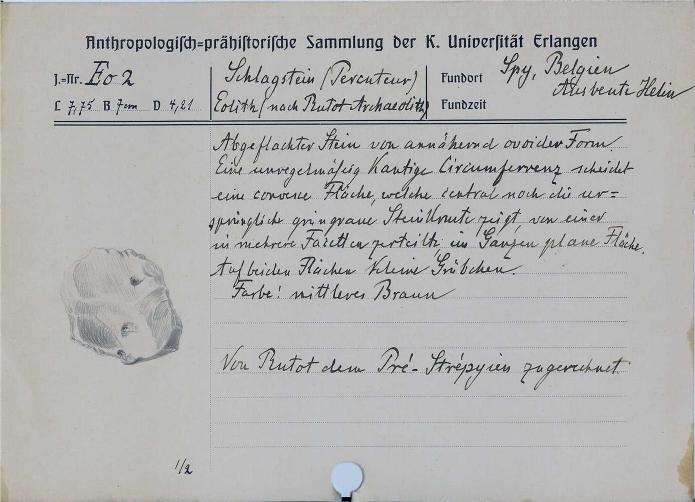 Anthropologisch=prähistorische Sammlung der K. Universität Erlangen
J.=Nr. Eo 2
L 7,75 B 7cm D 4,21
Schlagstein (Percuteur)
Eolith (nach Rutot Archaeolith)
Fundort Spy, Belgien
Ausbeute Helin
Fundzeit
Abgeflachter Stein von annähernd ovoider Form.
Eine unregelmäßig kantige Circumferrenz scheidet
eine convexe Fläche, welche central noch die ur=
sprüngliche grüngraue Steinkruste zeigt, von einer
in mehrere Facetten zerteilte, im Ganzen plane Fläche.
Auf beiden Flächen kleine Grübchen.
Farbe: mittleres Braun
Von Rutot dem Pré-Strépyien zugerechnet
1/2